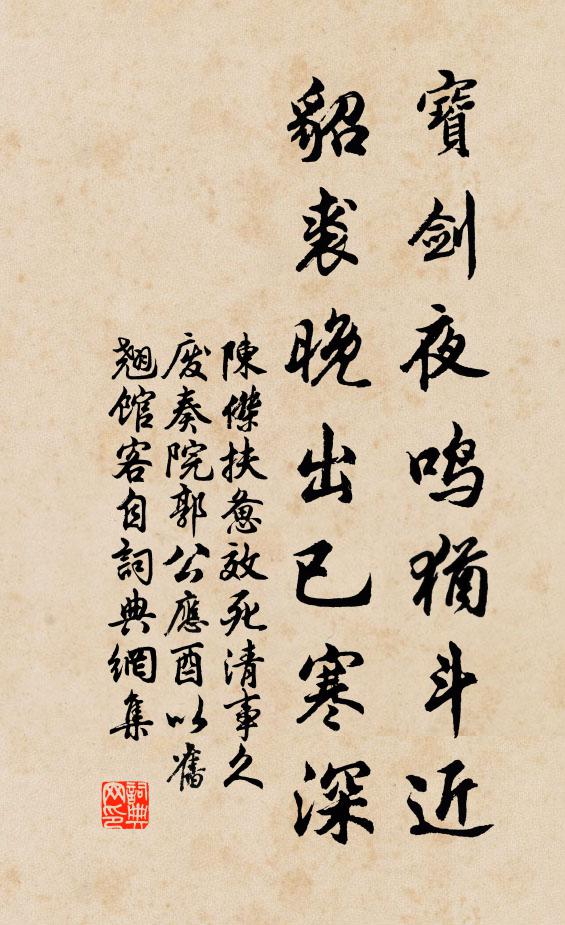 寶劍夜鳴猶斗近
貂裘晚出已寒深
陳傑扶惫效死清事久
廢奏院郭公應酉以舊
翹館客自詞典網集
詞典网印